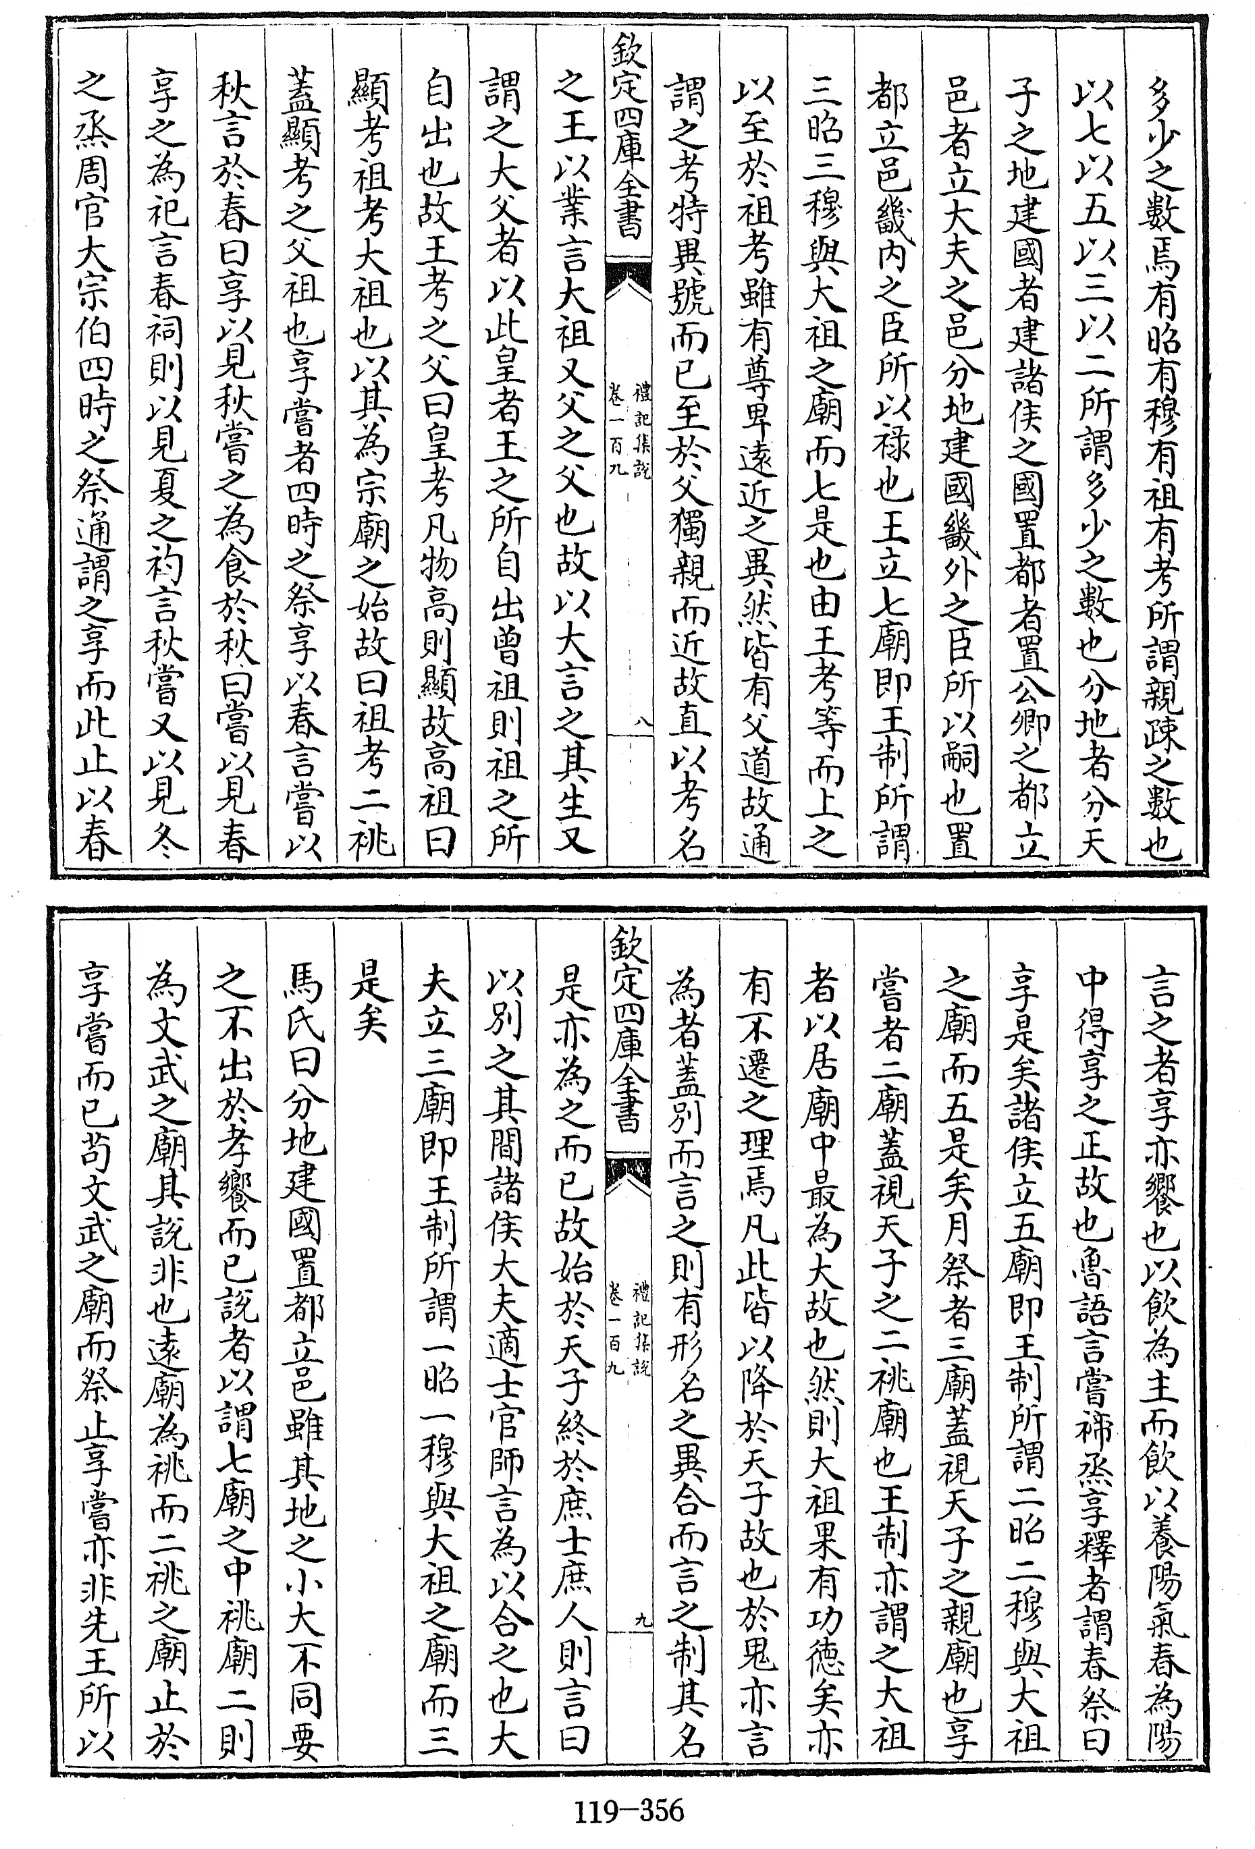 多少之數焉有昭有穆有祖有考所謂親疎之數也
以七以五以三以二所謂多少之數也分地者分天
子之地建國者建諸侯之國置都者置公卿之都立
邑者立大夫之邑分地建國畿外之臣所以嗣也置
都立邑畿内之臣所以禄也王立七廟即王制所謂
三昭三穆與大祖之廟而七是也由王考等而上之
以至於祖考雖有尊卑遠近之異然皆有父道故通
謂之考特異號而已至於父獨親而近故直以考名
欽定四庫全書
禮記集說
卷一百九
八
之王以業言大祖又父之父也故以大言之其生又
謂之大父者以此皇者王之所自出曽祖則祖之所
自出也故王考之父曰皇考凡物高則顯故高祖曰
顯考祖考大祖也以其為宗廟之始故曰祖考二祧
蓋顯考之父祖也享嘗者四時之祭享以春言嘗以
秋言於春曰享以見秋嘗之為食於秋曰嘗以見春
享之為祀言春祠則以見夏之礿言秋嘗又以見冬
之烝周官大宗伯四時之祭通謂之享而此止以春
言之者享亦饗也以飲為主而飲以養陽氣春為陽
中得享之正故也魯語言嘗禘烝享釋者謂春祭曰
享是矣諸侯立五廟即王制所謂二昭二穆與大祖
之廟而五是矣月祭者三廟蓋視天子之親廟也享
嘗者二廟蓋視天子之二祧廟也王制亦謂之大祖
者以居廟中最為大故也然則大祖果有功徳矣亦
有不遷之理焉凡此皆以降於天子故也於鬼亦言
為者蓋别而言之則有形名之異合而言之制其名
欽定四庫全書
禮記集說
卷一百九
九
是亦為之而已故始於天子終於庶士庶人則言曰
以别之其間諸侯大夫適士官師言為以合之也大
夫立三廟即王制所謂一昭一穆與大祖之廟而三
是矣
馬氏曰分地建國置都立邑雖其地之小大不同要
之不出於孝饗而已說者以謂七廟之中祧廟二則
為文武之廟其說非也遠廟為祧而二祧之廟止於
享嘗而已茍文武之廟而祭止享嘗亦非先王所以
119-356